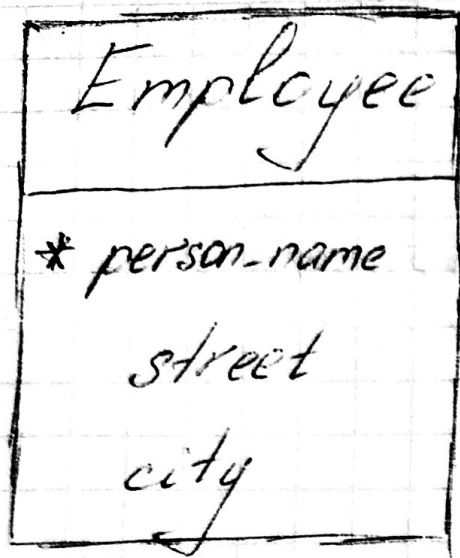 Employee
* person_name
street
city